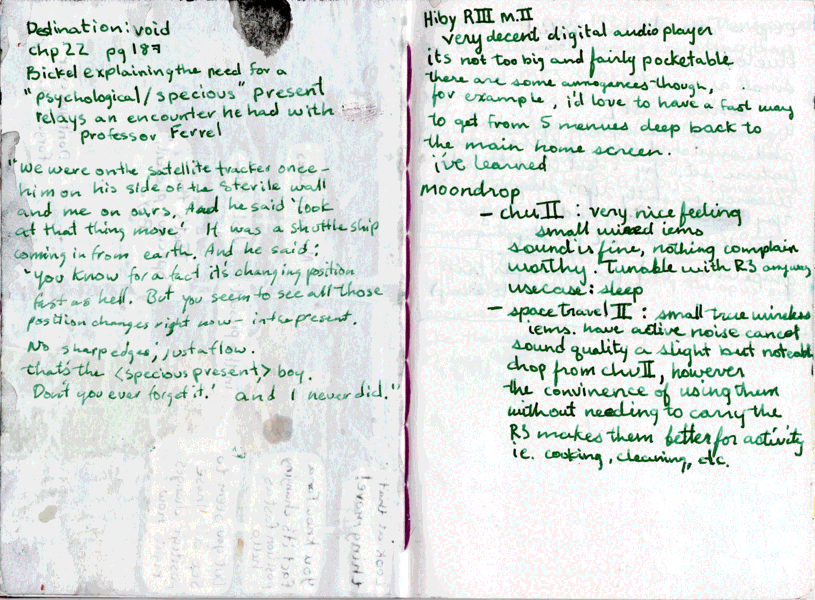 Destination: void
chp 22 pg 187
Bickel explaining the need for a
"psychological/specious" present
relays an encounter he had with
Professor Ferrel
"We were on the satellite tracker once -
him on his side of the sterile wall
and me on ours. And he said 'look
at that thing move' It was a shuttle ship
coming in from earth. And he said:
"You know for a fact it's changing position
fast as hell. But you seem to see all those
position changes right now - in te present.
No sharp edges; just a flow.
that's the <specious present,> boy.
Don't you ever forget it.' and I never did."
Hiby RIII M.II
very decent digital audio player
its not too big and fairly pocketable
there are some annoyances though,
for example, i'd love to have a fast way
to get from 5 menues deep back to
the main home screen.
i've learned
moondrop
- chu II : very nice feeling
small wired iems
sound is fine, nothing complain
worthy. Tunable with R3 anyway
usecase: sleep
- space travel II : small true wireless
iems. have active noise cancel
sound quality a slight but noteable
chop from chu II, however
the convinence of using them
without needing to carry the
R3 makes them better for activity
ie. cooking, cleaning, etc.